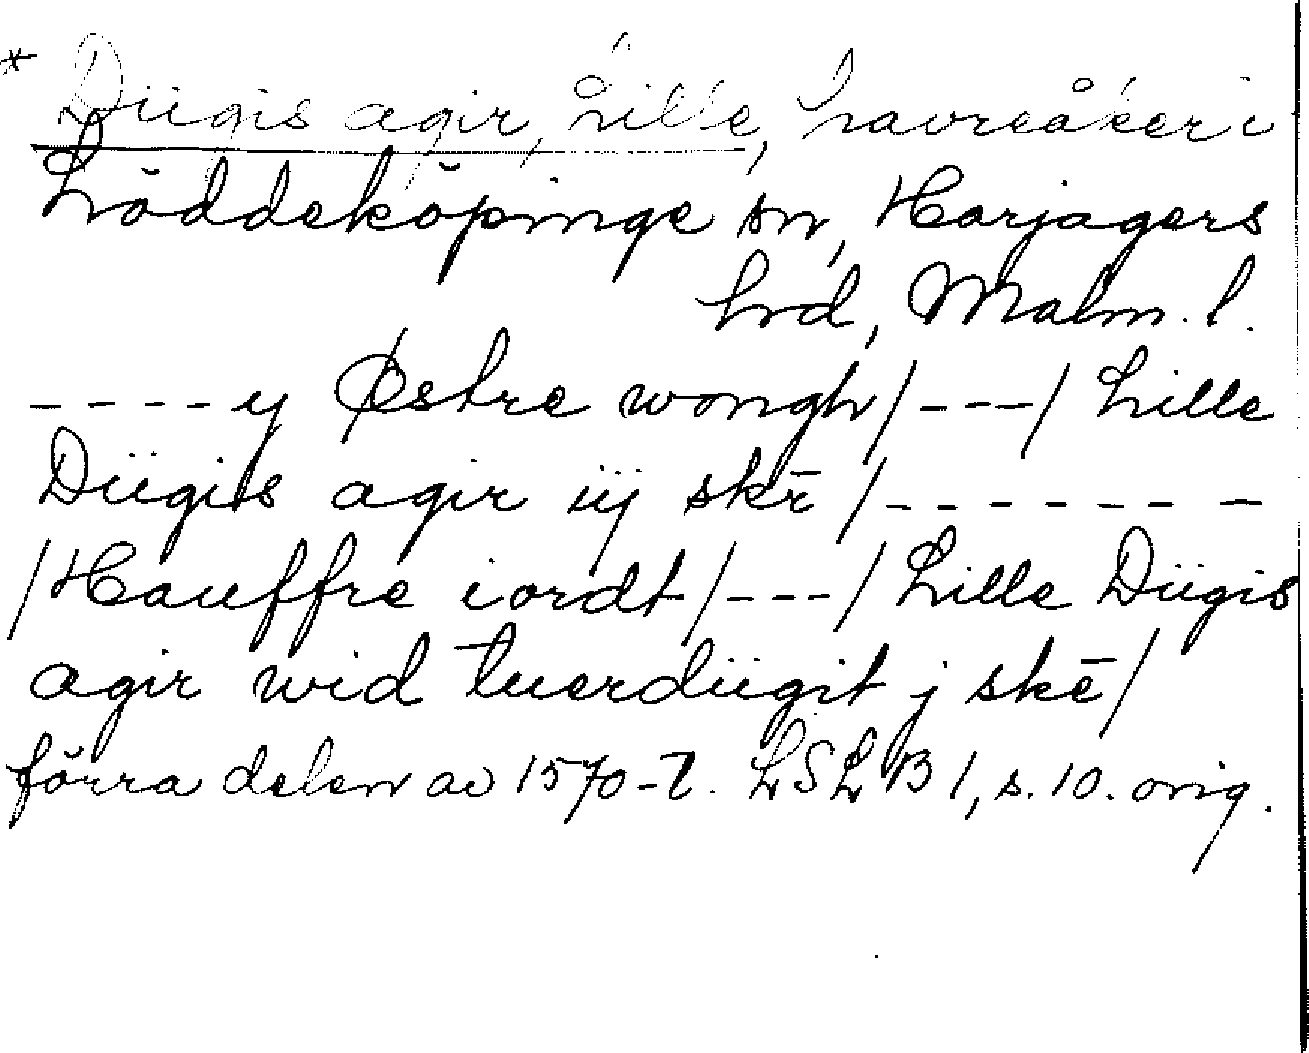 * Dügis agir, Lille, havreåker i
Löddeköpinge sn, Harjagers
hrd, Malm. l.
---- y Østre wongh/---/ Lille
Dügis agir iij skē /-------
/Hauffre iordt/---/ Lille Dügis
agir wid tuerdügit j skē/
förra delen av 1570-t. LSLB 1, s. 10. orig.